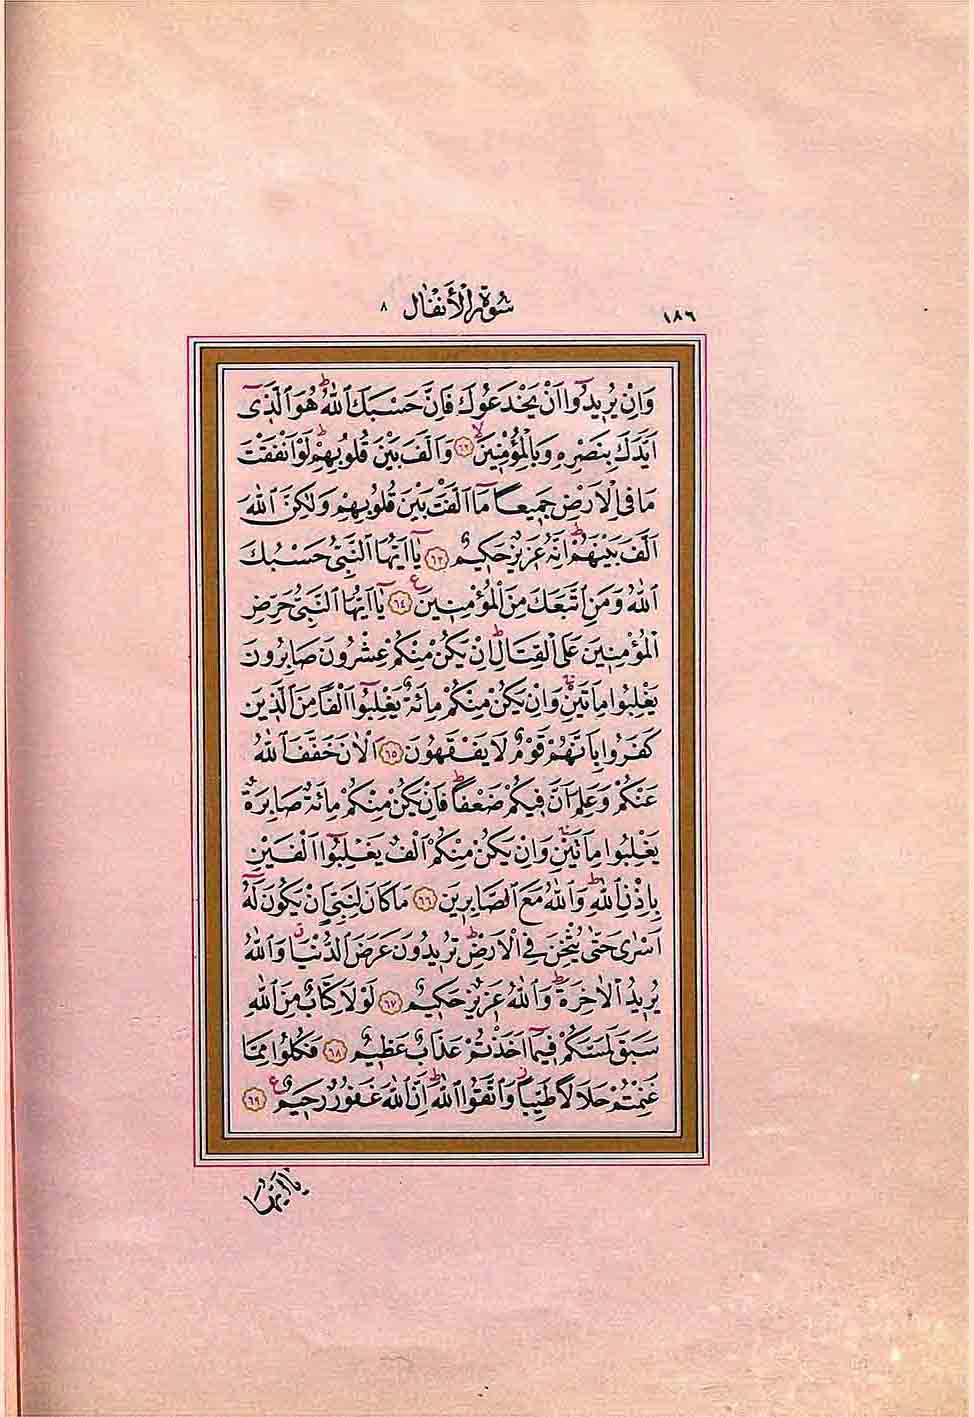 ١٨٦ سُورَةُ الْأَنْفَالِ ٨
وَاِنْ يُرِيدُٓوا اَنْ يَخْدَعُوكَ فَاِنَّ حَسْبَكَ اللّٰهُۜ هُوَ الَّذ۪ٓى
اَيَّدَكَ بِنَصْرِهِ وَبِالْمُؤْمِن۪ينَۙ ﴿٦٢﴾ وَاَلَّفَ بَيْنَ قُلُوبِهِمْۜ لَوْ اَنْفَقْتَ
مَا فِى الْاَرْضِ جَم۪يعًا مَٓا اَلَّفْتَ بَيْنَ قُلُوبِهِمْ وَلٰكِنَّ اللّٰهَ
اَلَّفَ بَيْنَهُمْۜ اِنَّهُ عَز۪يزٌ حَك۪يمٌ ﴿٦٣﴾ يَٓا اَيُّهَا النَّبِىُّ حَسْبُكَ
اللّٰهُ وَمَنِ اتَّبَعَكَ مِنَ الْمُؤْمِن۪ينَ۟ ﴿٦٤﴾ يَٓا اَيُّهَا النَّبِىُّ حَرِّضِ
الْمُؤْمِن۪ينَ عَلَى الْقِتَالِۜ اِنْ يَكُنْ مِنْكُمْ عِشْرُونَ صَابِرُونَ
يَغْلِبُوا مِاَتَيْنِۚ وَاِنْ يَكُنْ مِنْكُمْ مِائَةٌ يَغْلِبُٓوا اَلْفًا مِنَ الَّذ۪ينَ
كَفَرُوا بِاَنَّهُمْ قَوْمٌ لَا يَفْقَهُونَ ﴿٦٥﴾ اَلْاٰنَ خَفَّفَ اللّٰهُ
عَنْكُمْ وَعَلِمَ اَنَّ ف۪يكُمْ ضَعْفًاۜ فَاِنْ يَكُنْ مِنْكُمْ مِائَةٌ صَابِرَةٌ
يَغْلِبُوا مِاَتَيْنِۚ وَاِنْ يَكُنْ مِنْكُمْ اَلْفٌ يَغْلِبُٓوا اَلْفَيْنِ
بِاِذْنِ اللّٰهِۜ وَاللّٰهُ مَعَ الصَّابِر۪ينَ ﴿٦٦﴾ مَا كَانَ لِنَبِىٍّ اَنْ يَكُونَ لَهُٓ
اَسْرٰى حَتّٰى يُثْخِنَ فِى الْاَرْضِۜ تُر۪يدُونَ عَرَضَ الدُّنْيَاۗ وَاللّٰهُ
يُر۪يدُ الْاٰخِرَةَۜ وَاللّٰهُ عَز۪يزٌ حَك۪يمٌ ﴿٦٧﴾ لَوْلَا كِتَابٌ مِنَ اللّٰهِ
سَبَقَ لَمَسَّكُمْ ف۪يمَٓا اَخَذْتُمْ عَذَابٌ عَظ۪يمٌ ﴿٦٨﴾ فَكُلُوا مِمَّا
غَنِمْتُمْ حَلَالًا طَيِّبًاۘ وَاتَّقُوا اللّٰهَۜ اِنَّ اللّٰهَ غَفُورٌ رَح۪يمٌ۟ ﴿٦٩﴾
يَا اَيُّهَا